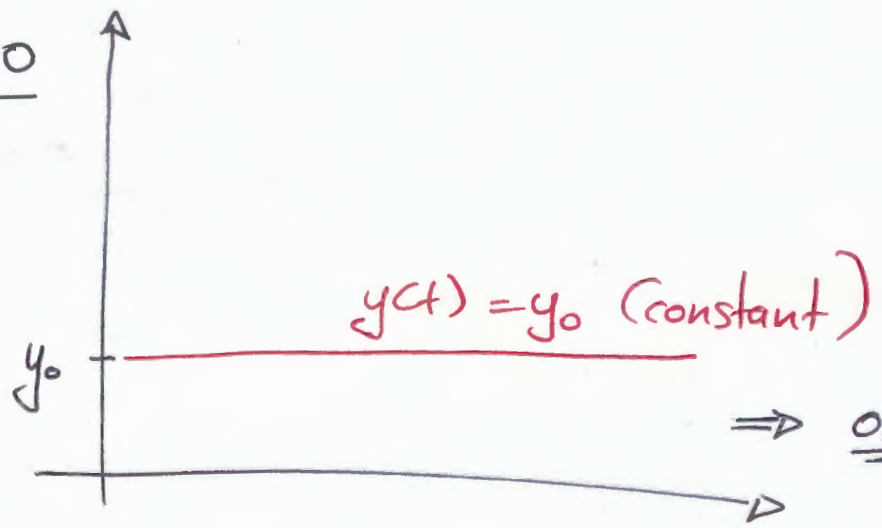 0
y(t) = y₀ (constant)
y₀
⇒